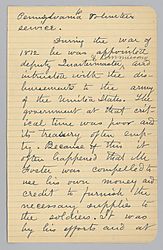 Pennsylvania Volunteer
service.
During the war of
1812 he was appointed
deputy Quartermaster, and
intrusted with the dis-
bursements to the army
of the United States. The
government at that crit-
ical time was poor and
its treasury often emp-
ty. Because of this it
often happened that Mr
Foster was compelled to
use his own money and
credit to furnish the
necessary supplies to
the soldiers. It was
by his efforts and at